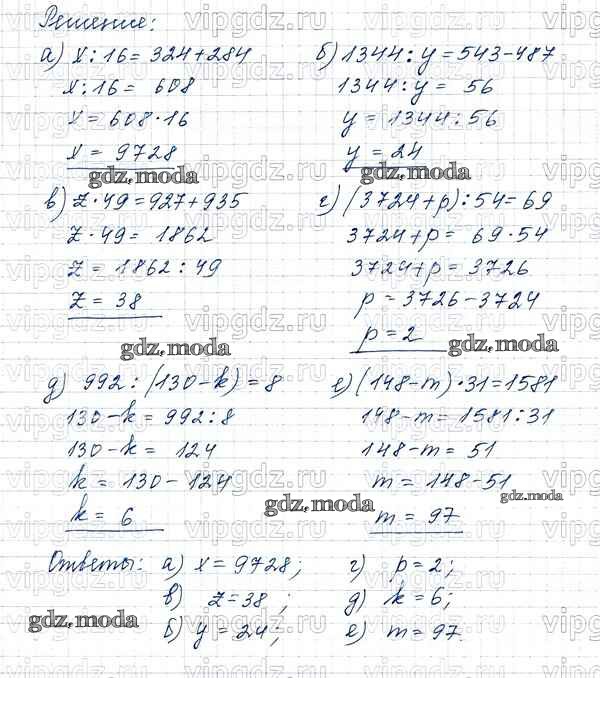 Решение:
а) x : 16 = 324 + 284
x : 16 = 608
x = 608 · 16
x = 9728
gdz.moda
б) 1344 : y = 543 - 487
1344 : y = 56
y = 1344 : 56
y = 24
gdz.moda
в) z · 49 = 927 + 935
z · 49 = 1862
z = 1862 : 49
z = 38
gdz.moda
г) (3724 + p) : 54 = 69
3724 + p = 69 · 54
3724 + p = 3726
p = 3726 - 3724
p = 2
gdz.moda
д) 992 : (130 - k) = 8
130 - k = 992 : 8
130 - k = 124
k = 130 - 124
k = 6
gdz.moda
е) (148 - m) · 31 = 1581
148 - m = 1581 : 31
148 - m = 51
m = 148 - 51
m = 97
gdz.moda
Ответы: а) x = 9728; г) p = 2;
в) z = 38 ; д) k = 6;
б) y = 24; е) m = 97.
gdz.moda
vipgdz.ru